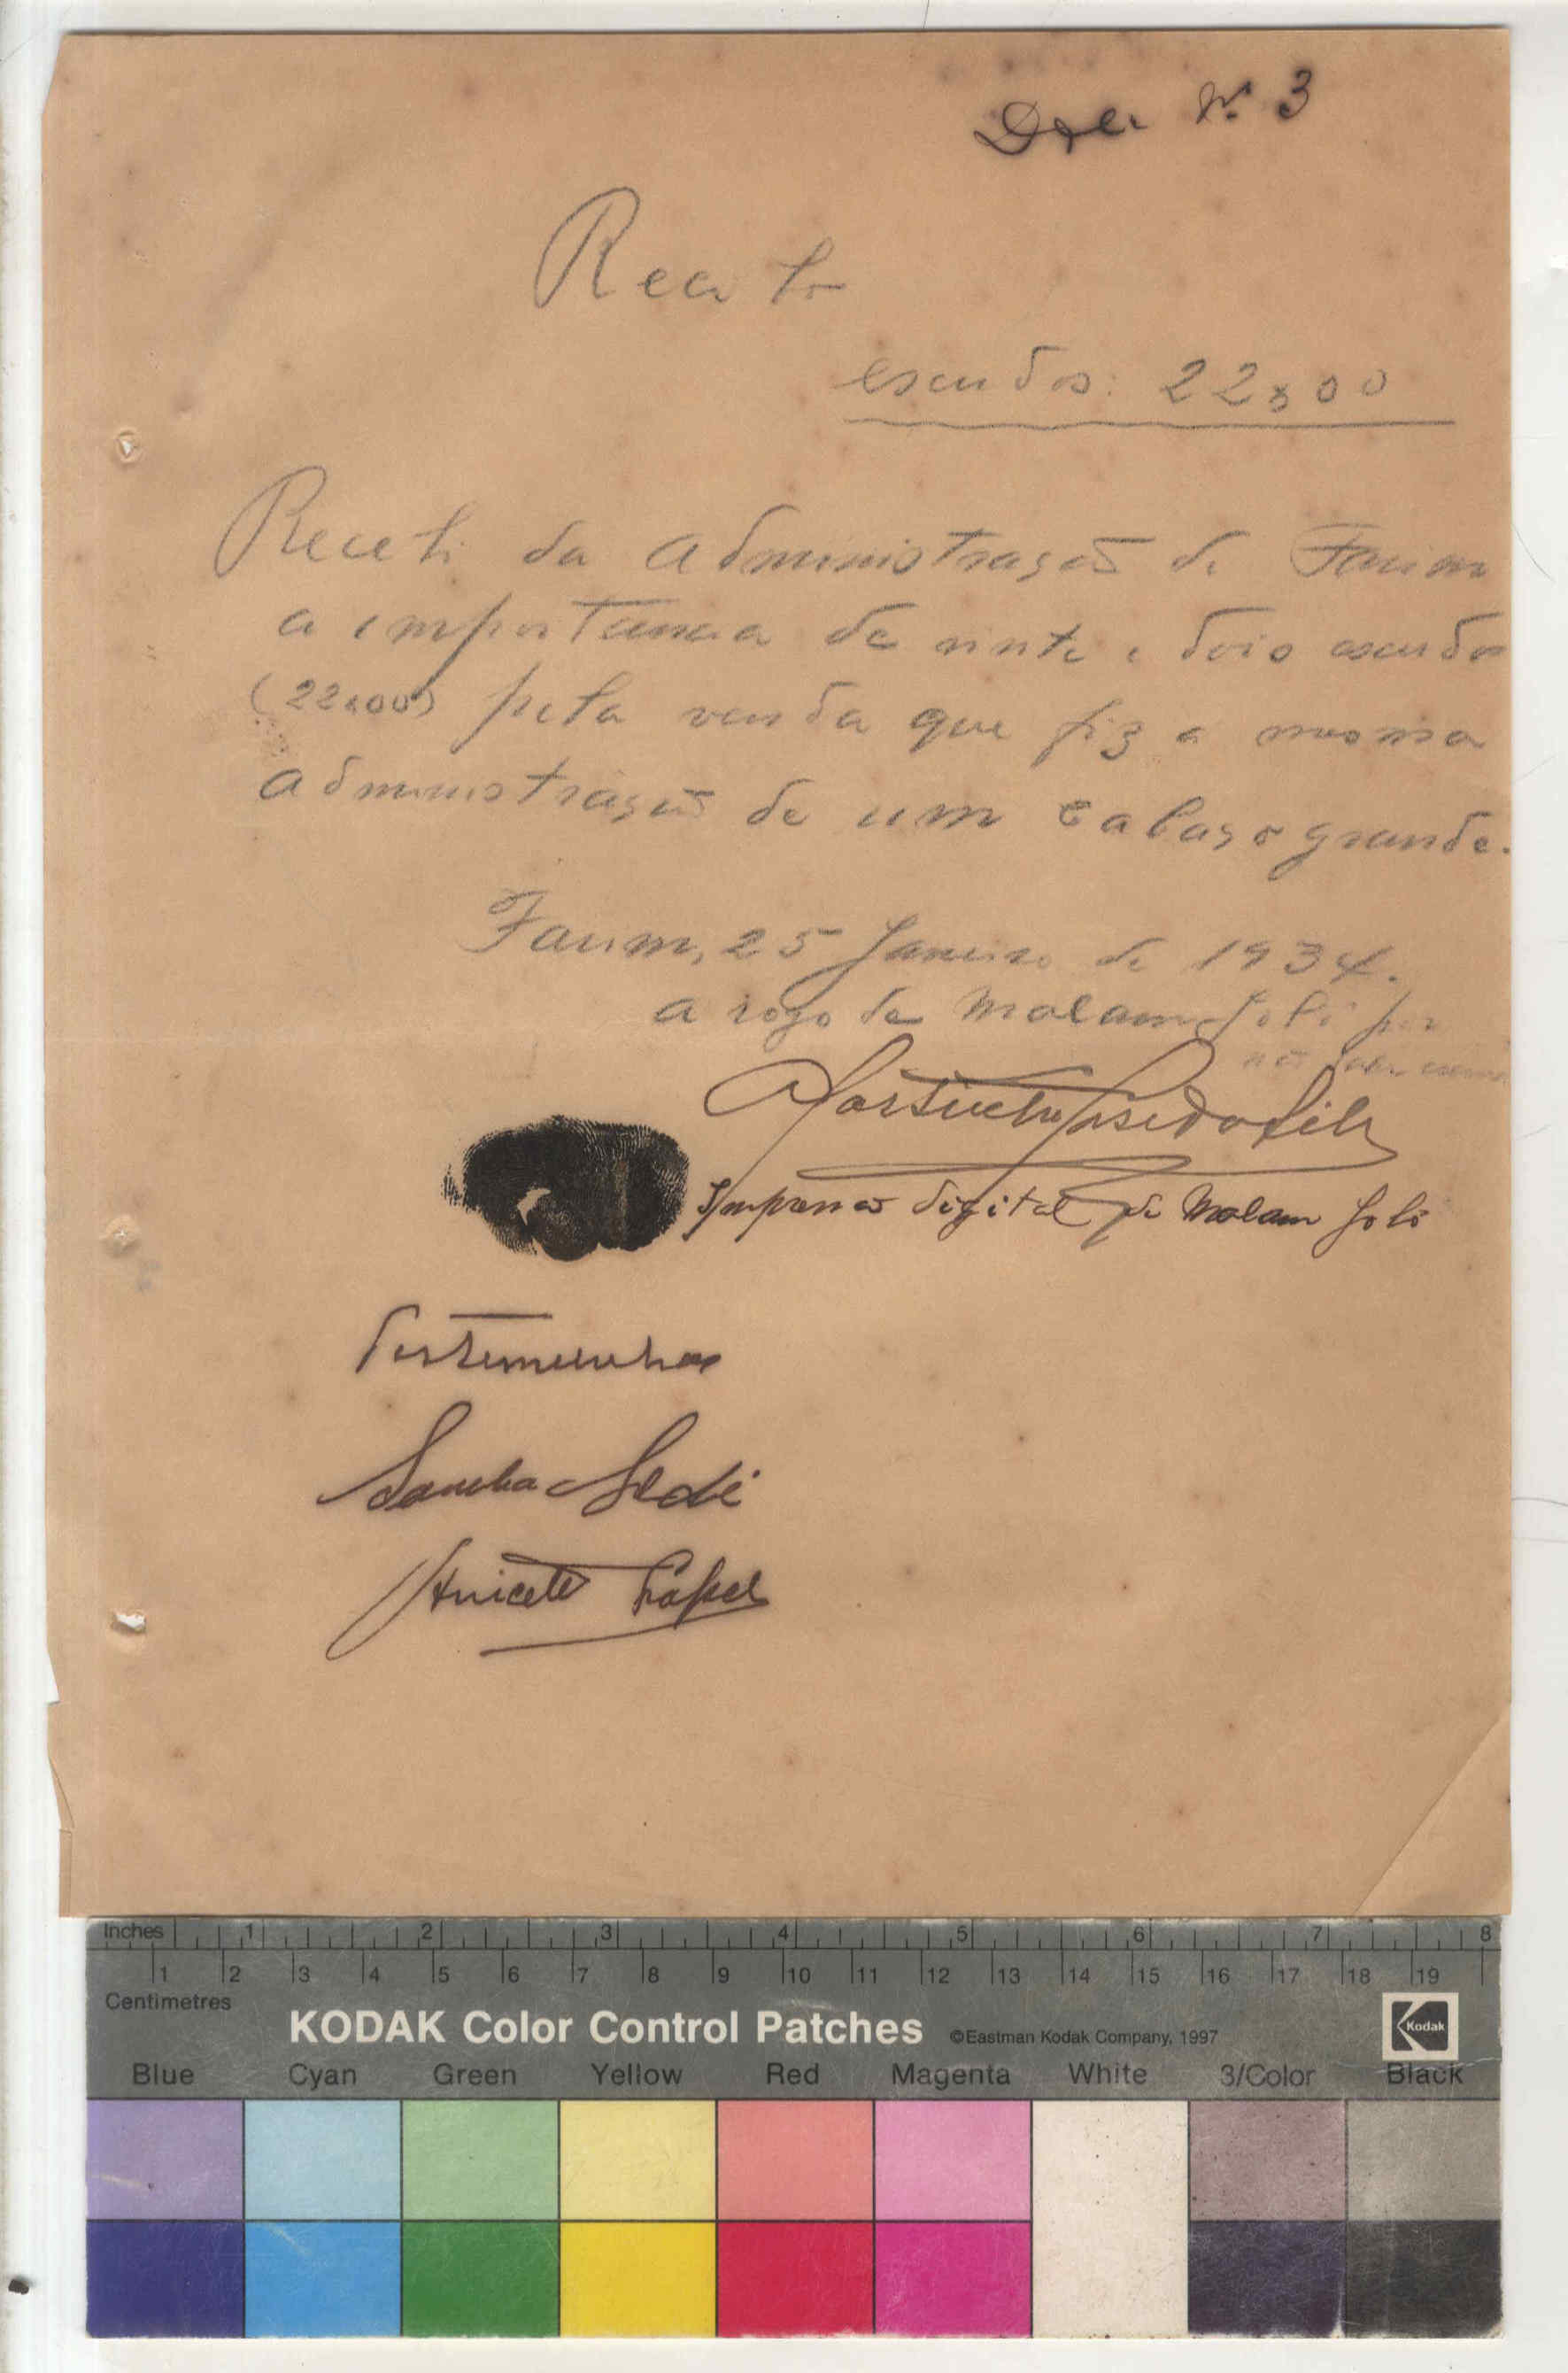 Doc. Nº 3
Recibo
escudos: 22$00
Recebi da Administração de Farim
a importancia de vinte e dois escudos
(22$00) pela venda que fiz a mesma
Administração de um cabaço grande.
Farim, 25 Janeiro de 1934.
a rogo de Malam Joli por
não saber escrever
Impressão digital de Malam Joli
Testemunhas
Sancha Sedi
Aniceto Lopes
Inches 1 2 3 4 5 6 7 8
1 2 3 4 5 6 7 8 9 10 11 12 13 14 15 16 17 18 19
Centimetres
KODAK Color Control Patches ©Eastman Kodak Company, 1997 Kodak
Blue Cyan Green Yellow Red Magenta White 3/Color Black